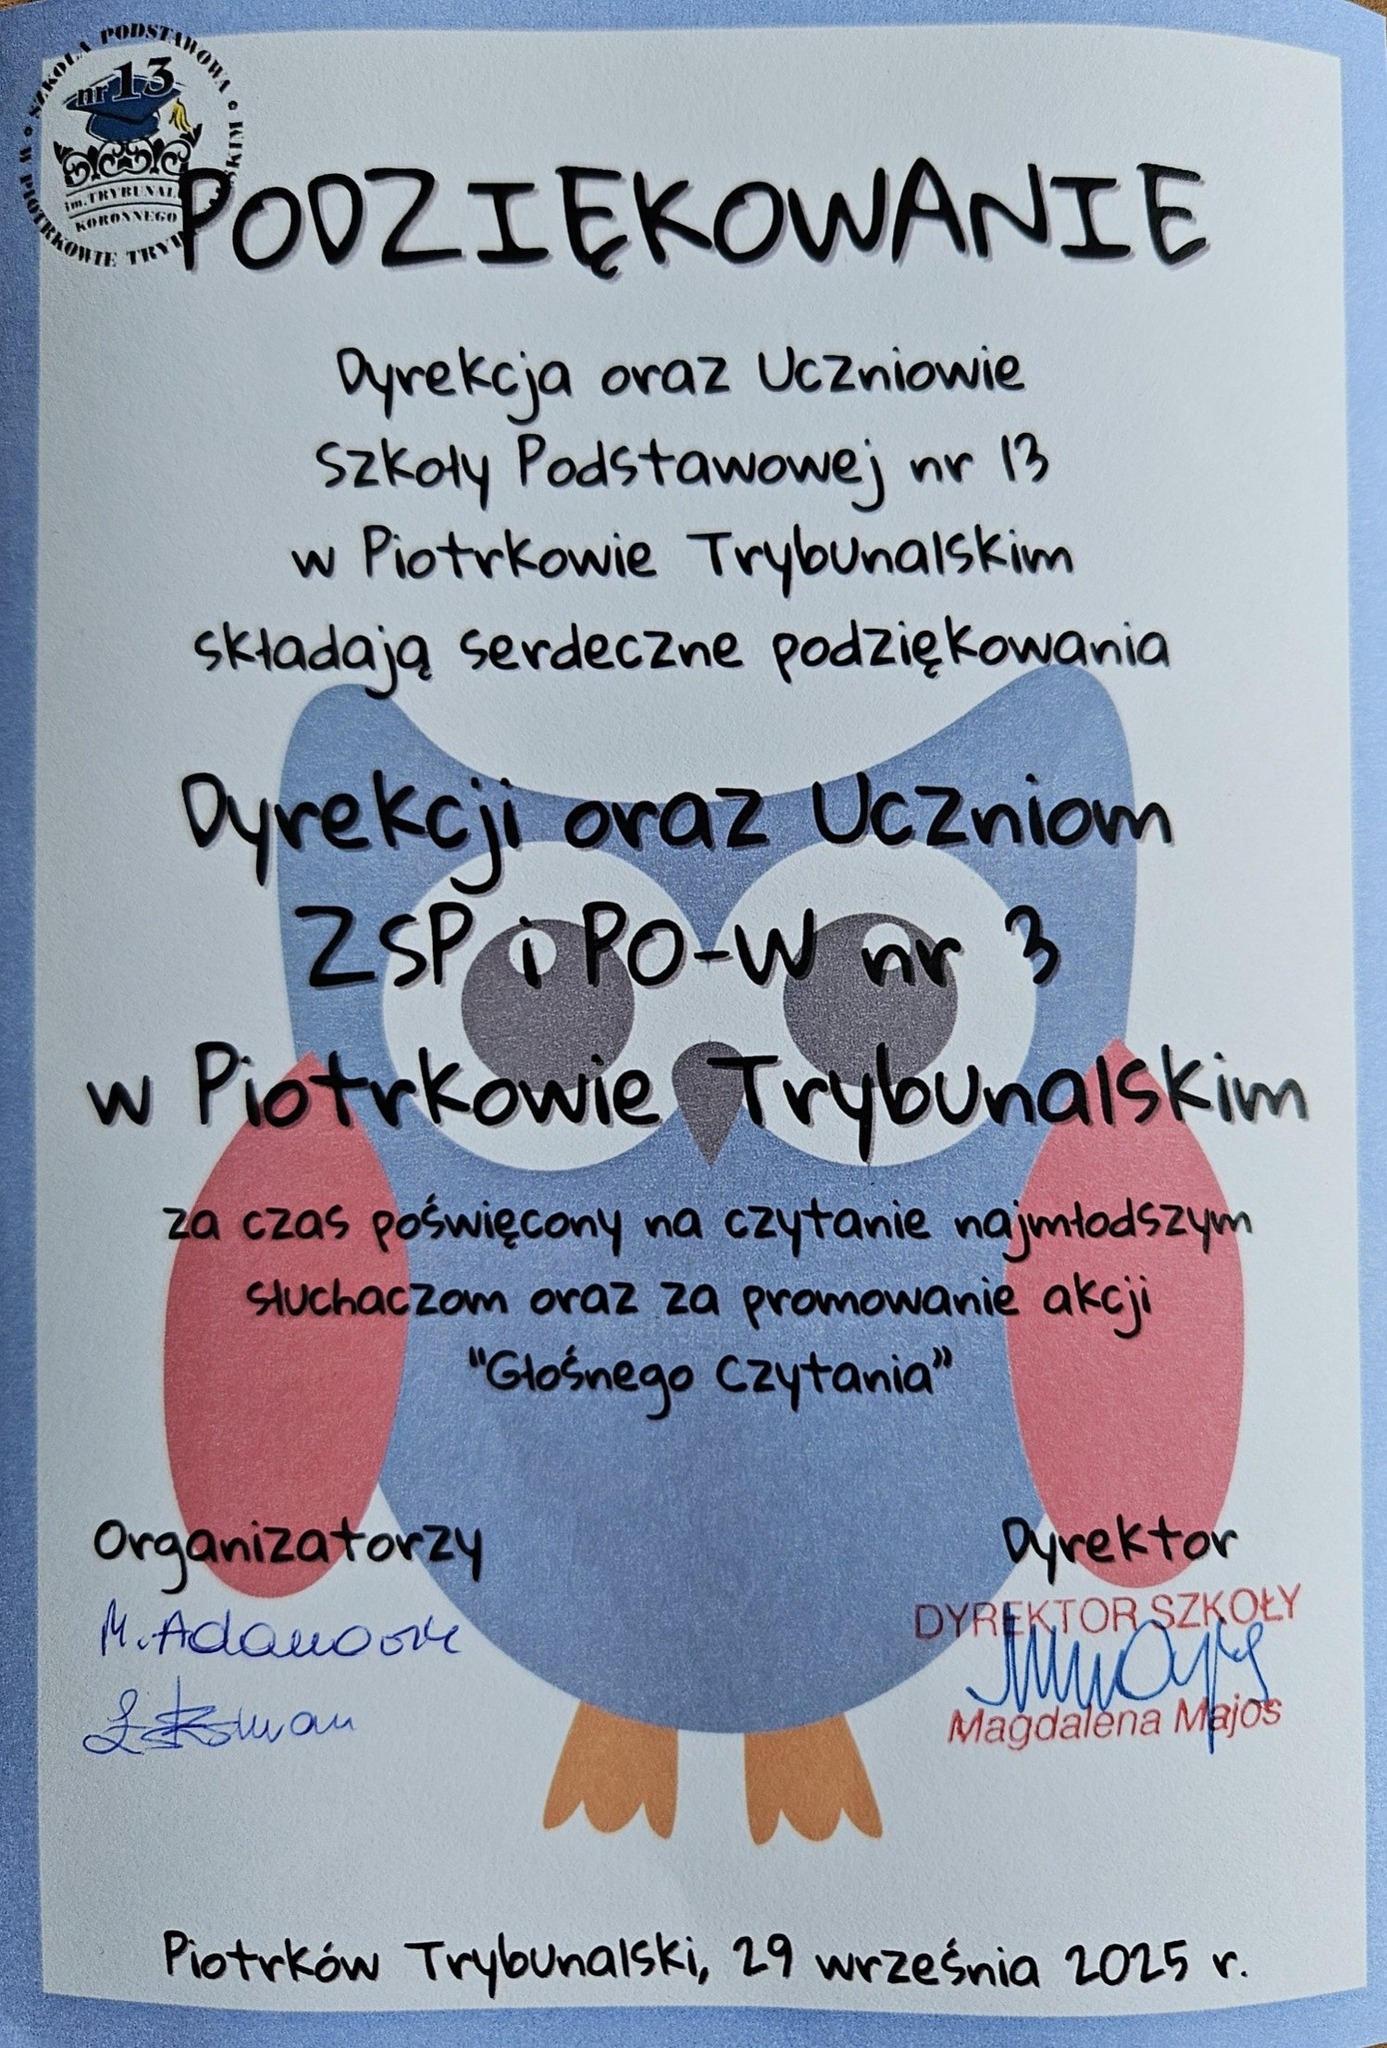 SZKOŁA PODSTAWOWA
nr 13
im. TRYBUNAŁ
KORONNEGO
W PIOTRKOWIE
PODZIĘKOWANIE
Dyrekcja oraz Uczniowie
Szkoły Podstawowej nr 13
w Piotrkowie Trybunalskim
składają serdeczne podziękowania
Dyrekcji oraz Uczniom
ZSP i PO-W nr 3
w Piotrkowie Trybunalskim
za czas poświęcony na czytanie najmłodszym
słuchaczom oraz za promowanie akcji
"Głośnego Czytania"
Organizatorzy Dyrektor
DYREKTOR SZKOŁY
Magdalena Majos
Piotrków Trybunalski, 29 września 2025 r.